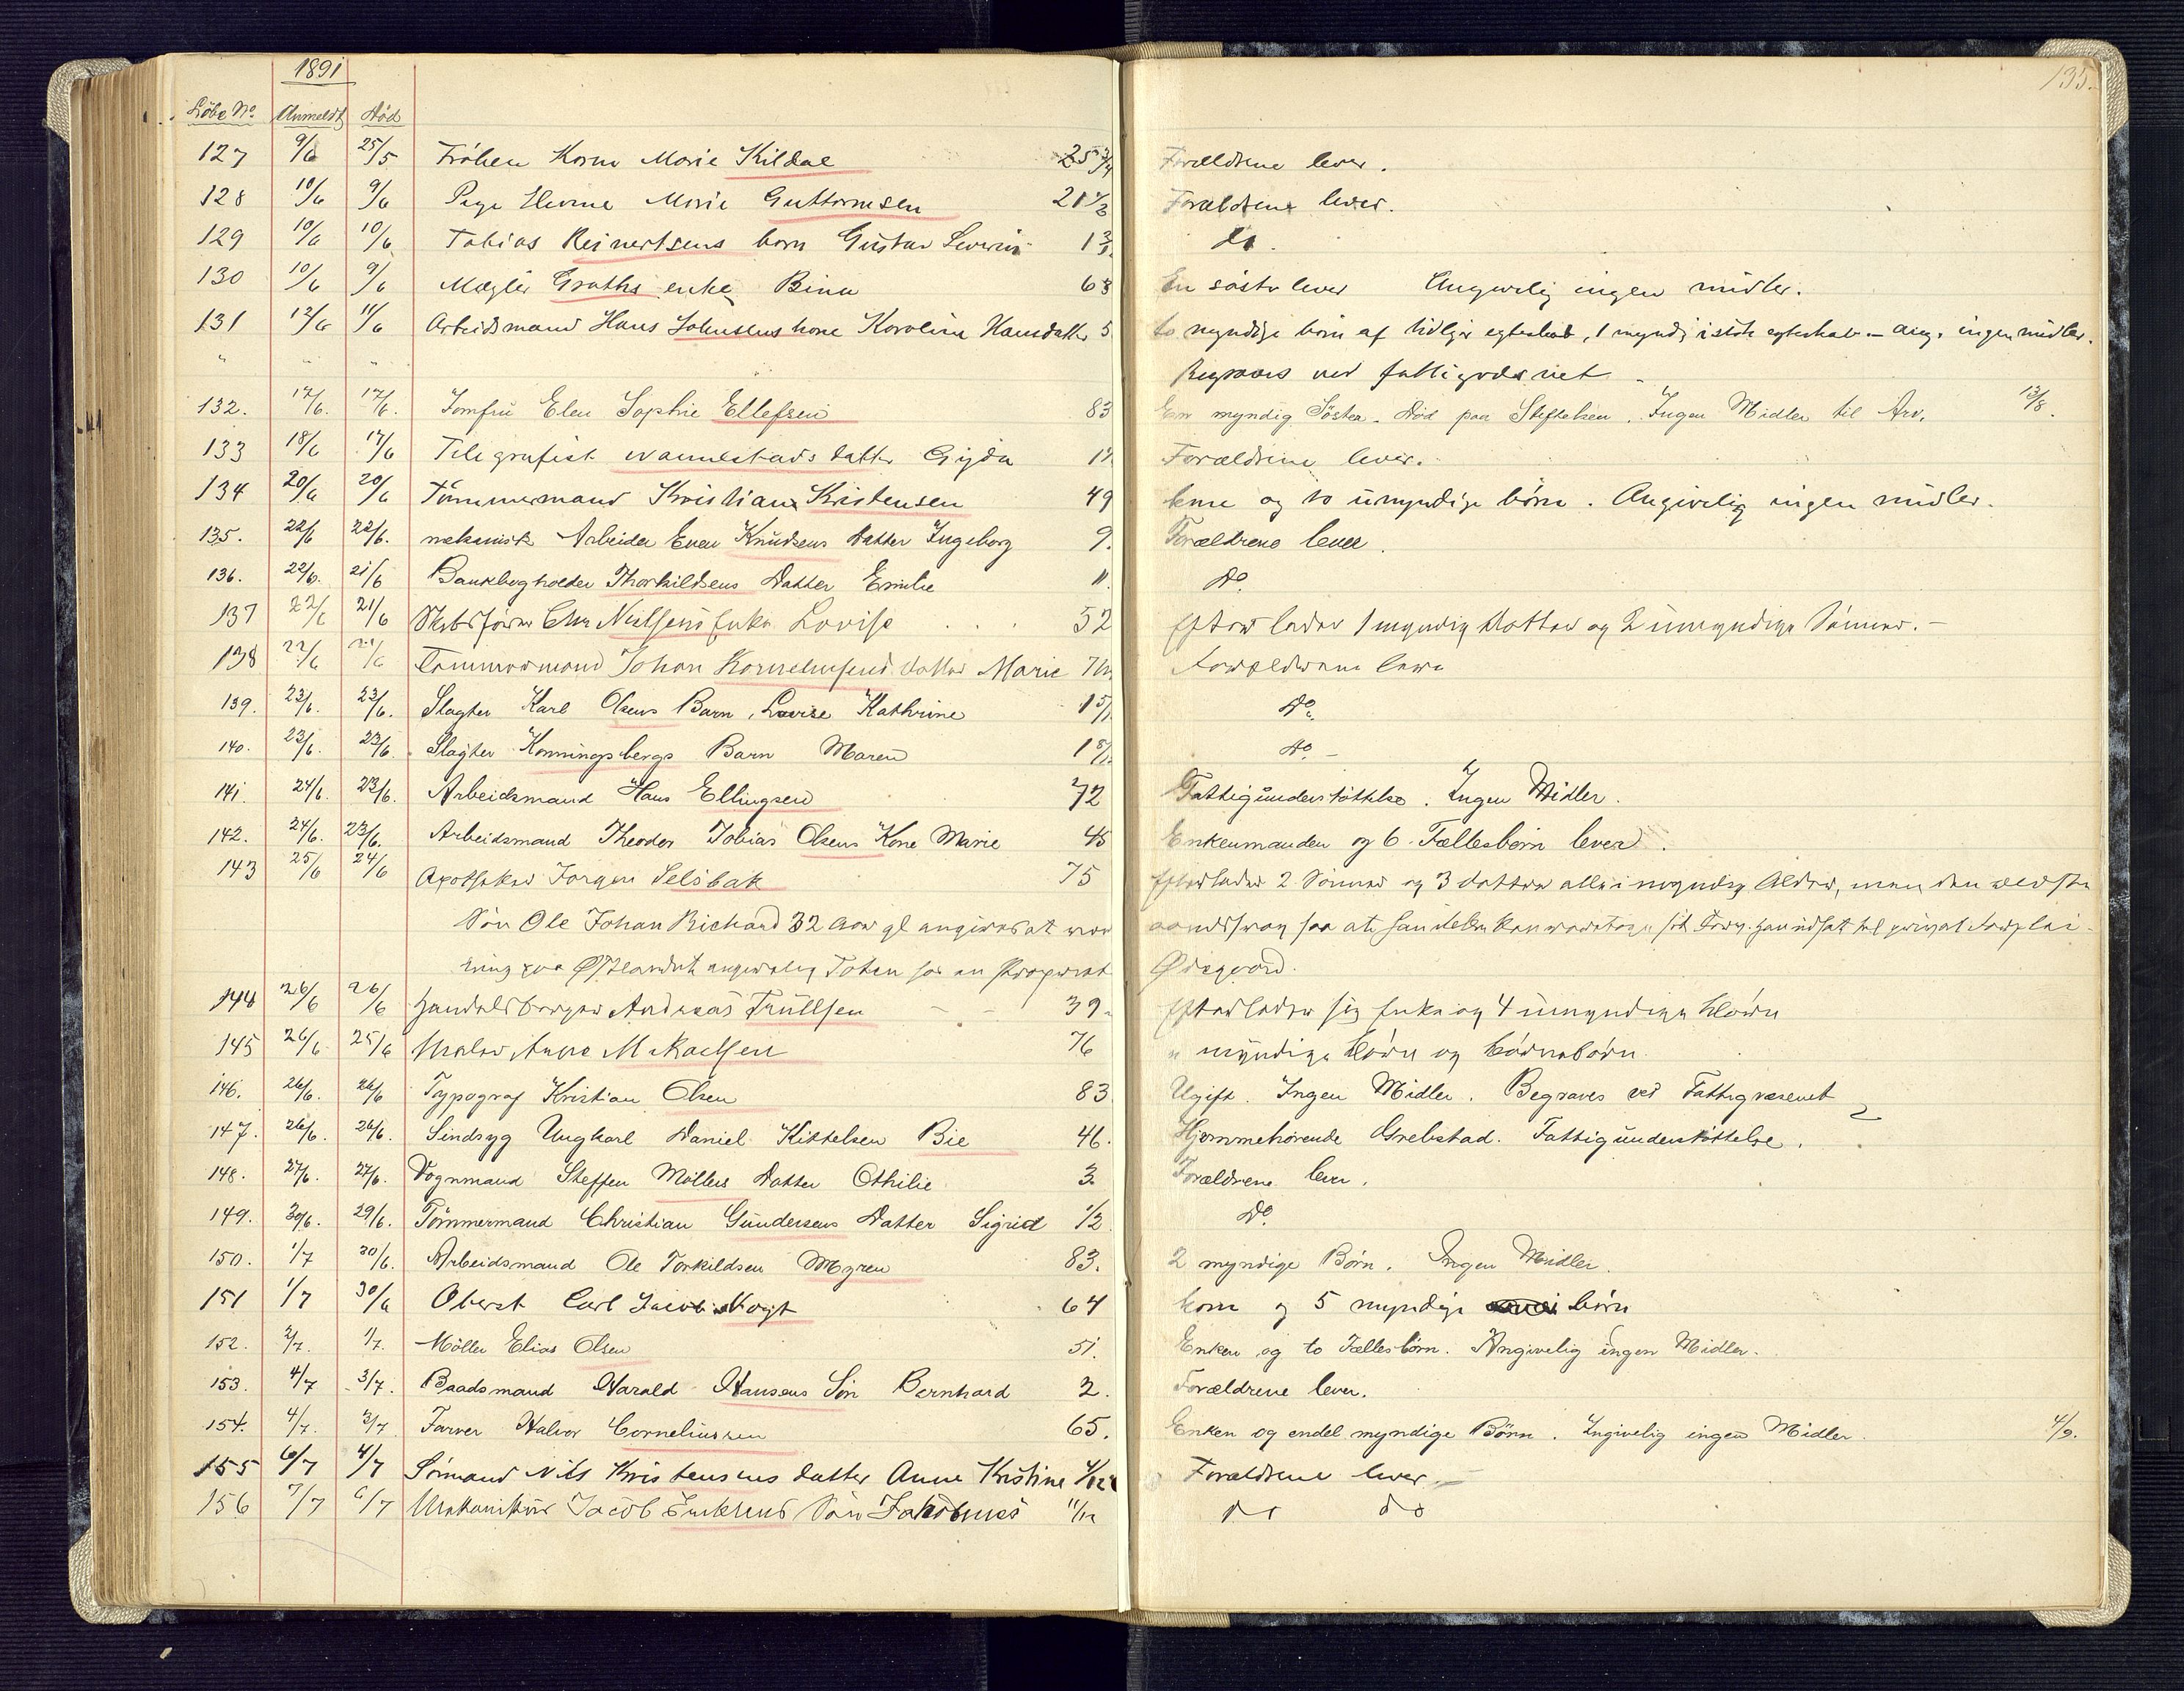 1891
135.
Løbe No. Anmeldt Død
127 9/6 25/5 Frøken Marie Kildal 25 Forældrene lever.
128 10/6 9/6 Pige Marie Guttormsen 21 1/2 Forældrene lever.
129 10/6 10/6 Tobias Reinertsens barn Gustav Severin 1 do.
130 10/6 9/6 Mægler Groths enke Bina 63 En søster lever Angivelig ingen midler.
131 12/6 11/6 Arbeidsmand Hans Johnsens kone Karoline Hansdatter 5 to myndige børn af tidligere egteskab, 1 myndig i sidste egteskab – ang. ingen midler.
" " " Begraves ved fattigvæsenet
132. 17/6. 17/6. Jomfru Elen Sophie Ellefsen 83 En myndig Søster. Død paa Stiftelsen. Ingen Midler til Arv. 13/8.
133 18/6 17/6 Telegrafist datter Gyda Forældrene lever.
134 20/6 20/6 Tømmermand Kristian Kristensen 49 kone og to umyndige børn. Angivelig ingen midler.
135. 22/6 22/6. mekanisk Arbeider Even Knudsens Datter Ingeborg 9. Forældrene lever.
136. 22/6. 21/6 Bankbogholder Thorkildsens Datter Emilie 11. Do.
137 22/6 21/6 Skibsfører Chr Nielsens Enke Lovise . . . 52 Efterlader 1 myndig Datter og 2 umyndige Sønner. –
138 22/6 Tømmermand Johan Kornelinsens datter Marie Forældrene lever
139. 23/6. 23/6. Slagter Karl Olsens Barn, Lovise Kathrine 1 Do.
140. 23/6. 23/6. Slagter Konningsbergs Barn Maren 1 Do. –
141. 24/6. 23/6. Arbeidsmand Hans Ellingsen 72 Fattigunderstøttelse. Ingen Midler.
142. 24/6. 23/6. Arbeidsmand Theodor Tobias Olsens Kone Marie 45 Enkemanden og 6 Fællesbørn lever.
143 25/6 24/6 Apotheker Jørgen Selsbak 75 Efterlader 2 Sønner og 3 døttre alle i myndig Alder, men den
Søn Ole Johan Richard 32 Aar gl angives at være
paa Østlandet angivelig Toten hos en Proprietær
144 26/6 26/6 Handelsborger Andreas Trullsen 39 Efterlader sig Enke og 4 umyndige Børn
145 26/6 25/6 Mikaelsen 76 " myndige Børn og Børnebørn
146. 26/6. 26/6 Typograf Kristian Olsen 83 Ugift. Ingen Midler. Begraves ved Fattigvæsenet
147. 26/6. 26/6. Sindsyg Ungkarl Daniel Kittelsen Bie 46. Hjemmehørende Grebstad. Fattigunderstøttelse.
148. 27/6. 27/6. Vognmand Steffen Møllers Datter Othilie 3. Forældrene lever.
149. 30/6. 29/6. Tømmermand Christian Gundersens Datter Sigrid 1/2 Do.
150. 1/7 30/6. Arbeidsmand Ole Torkildsen Myren 83. 2 myndige Børn. Ingen Midler.
151 1/7 30/6 Oberst Carl Jacob Vogt 64 kone og 5 myndige børn
152. 2/7. 1/7. Møller Elias Olsen 51. Enken og to Fællesbørn. Angivelig ingen Midler.
153. 4/7 3/7. Baadsmand Harald Hansens Søn Bernhard 2. Forældrene lever.
154. 4/7. 3/7 Farver Halvor Corneliussen 65. Enken og endel myndige Børn. Angivelig ingen Midler. 4/9.
155 6/7 4/7 Sømand Nils Kristensens datter Anne Kristine 4/12 Forældrene lever. –
156 7/7 6/7 Mekanikus Jacob Søn 11/12 do do